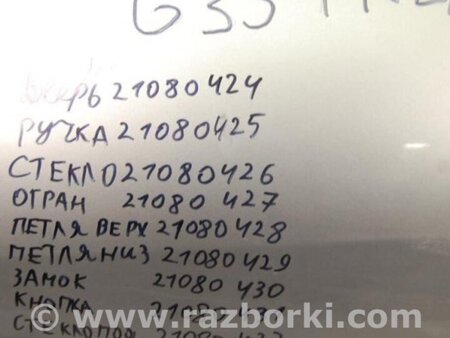 G35
дверь 21080424
РУЧКА 21080425
СТЕКЛО 21080426
ОГРАН 21080 427
ПЕТЛЯ ВЕРХ 21080428
ПЕТЛЯ НИЗ 21080429
ЗАМОК 21080 430
КНОПКА
www.razborki.com